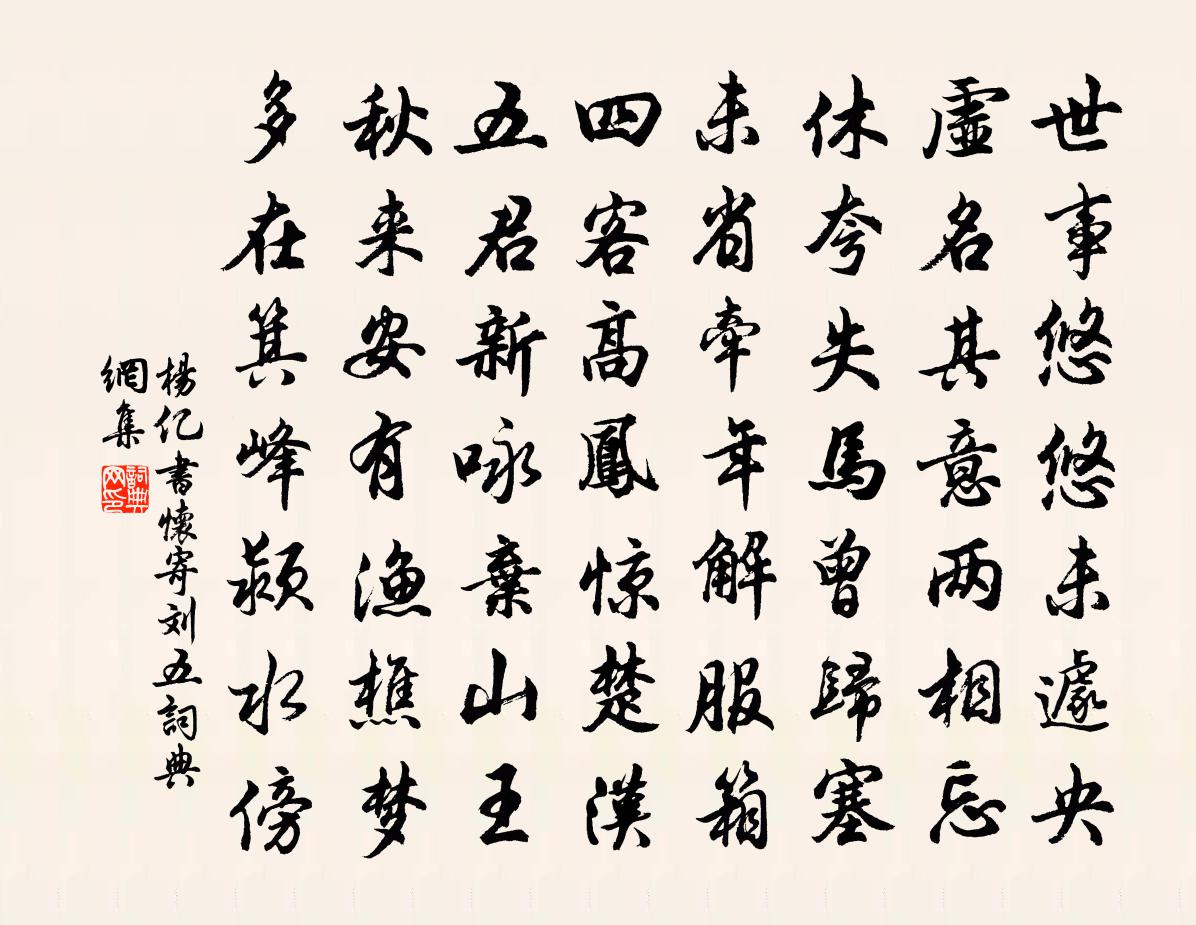 世事悠悠未遽央
虛名其意两相忘
休夸失馬曾歸塞
未省牽年解服箱
四客高鳳惊楚漢
五君新咏棄山王
秋来安有漁樵梦
多在箕峰潁水傍
楊亿書懷寄刘五詞典
網集
詞典
网印